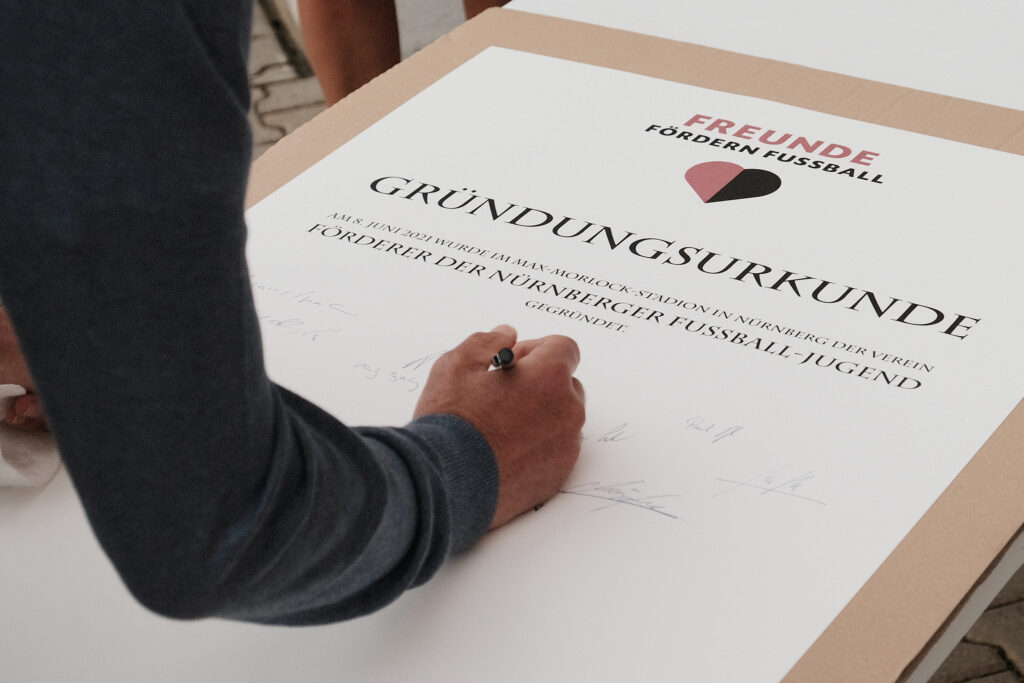 FREUNDE
FÖRDERN FUSSBALL
GRÜNDUNGSURKUNDE
AM 8. JUNI 2021 WURDE IM MAX-MORLOCK-STADION IN NÜRNBERG DER VEREIN
FÖRDERER DER NÜRNBERGER FUSSBALL-JUGEND
GEGRÜNDET.